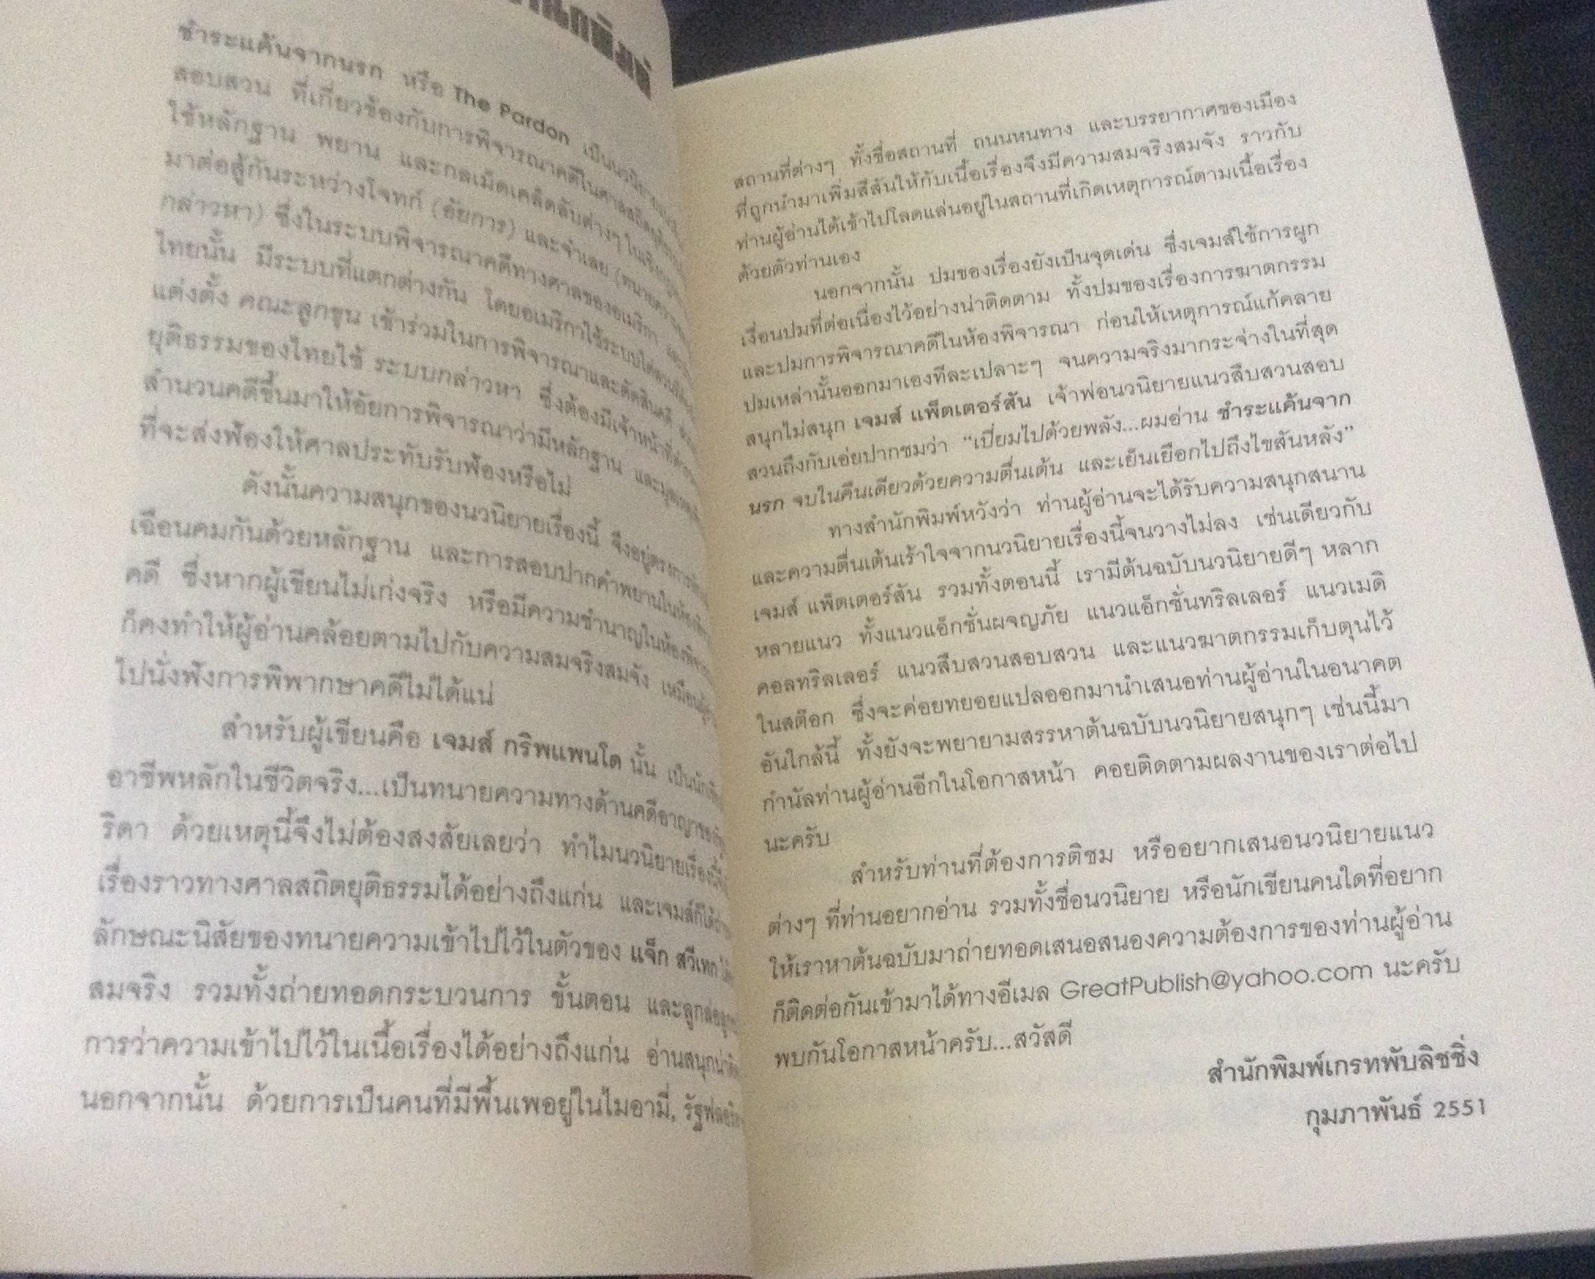 ชำระแค้นจากนรก หรือ The Pardon เป็นนวนิยาย
สอบสวน ที่เกี่ยวข้องกับการพิจารณาคดีในศาลสถิตยุติธรรม
ใช้หลักฐาน พยาน และกลเม็ดเคล็ดลับต่างๆ ในเชิง
มาต่อสู้กันระหว่างโจทก์ (อัยการ) และจำเลย
กล่าวหา) ซึ่งในระบบพิจารณาคดีทางศาลของอเมริกา
ไทยนั้น มีระบบที่แตกต่างกัน โดยอเมริกาใช้ระบบ
แต่งตั้ง คณะลูกขุน เข้าร่วมในการพิจารณาและตัดสินคดี
ยุติธรรมของไทยใช้ ระบบกล่าวหา ซึ่งต้องมีเจ้าหน้าที่
สำนวนคดีขึ้นมาให้อัยการพิจารณาว่ามีหลักฐาน
ที่จะส่งฟ้องให้ศาลประทับรับฟ้องหรือไม่
ดังนั้นความสนุกของนวนิยายเรื่องนี้ จึงอยู่ตรง
เฉือนคมกันด้วยหลักฐาน และการสอบปากคำพยานใน
คดี ซึ่งหากผู้เขียนไม่เก่งจริง หรือมีความชำนาญในห้อง
ก็คงทำให้ผู้อ่านคล้อยตามไปกับความสมจริงสมจัง
ไปนั่งฟังการพิพากษาคดีไม่ได้แน่
สำหรับผู้เขียนคือ เจมส์ กริพแพนโด นั้น
อาชีพหลักในชีวิตจริง...เป็นทนายความทางด้านคดีอาญา
ริดา ด้วยเหตุนี้จึงไม่ต้องสงสัยเลยว่า ทำไมนวนิยายเรื่องนี้
เรื่องราวทางศาลสถิตยุติธรรมได้อย่างถึงแก่น และเจมส์ก็ได้
ลักษณะนิสัยของทนายความเข้าไปไว้ในตัวของ แจ็ก สวีเทก
สมจริง รวมทั้งถ่ายทอดกระบวนการ ขั้นตอน และลูกล่อ
การว่าความเข้าไปไว้ในเนื้อเรื่องได้อย่างถึงแก่น อ่านสนุก
นอกจากนั้น ด้วยการเป็นคนที่มีพื้นเพอยู่ในไมอามี่,
สถานที่ต่างๆ ทั้งชื่อสถานที่ ถนนหนทาง และบรรยากาศของเมือง
ที่ถูกนำมาเพิ่มสีสันให้กับเนื้อเรื่องจึงมีความสมจริงสมจัง ราวกับ
ท่านผู้อ่านได้เข้าไปโลดแล่นอยู่ในสถานที่เกิดเหตุการณ์ตามเนื้อเรื่อง
ด้วยตัวท่านเอง
นอกจากนั้น ปมของเรื่องยังเป็นจุดเด่น ซึ่งเจมส์ใช้การผูก
เงื่อนปมที่ต่อเนื่องไว้อย่างน่าติดตาม ทั้งปมของเรื่องการฆาตกรรม
และปมการพิจารณาคดีในห้องพิจารณา ก่อนให้เหตุการณ์แก้คลาย
ปมเหล่านั้นออกมาเองทีละเปลาะๆ จนความจริงมากระจ่างในที่สุด
สนุกไม่สนุก เจมส์ แพ็ตเตอร์สัน เจ้าพ่อนวนิยายแนวสืบสวนสอบ
สวนถึงกับเอ่ยปากชมว่า “เปี่ยมไปด้วยพลัง...ผมอ่าน ชำระแค้นจาก
นรก จบในคืนเดียวด้วยความตื่นเต้น และเย็นเยือกไปถึงไขสันหลัง”
ทางสำนักพิมพ์หวังว่า ท่านผู้อ่านจะได้รับความสนุกสนาน
และความตื่นเต้นเร้าใจจากนวนิยายเรื่องนี้จนวางไม่ลง เช่นเดียวกับ
เจมส์ แพ็ตเตอร์สัน รวมทั้งตอนนี้ เรามีต้นฉบับนวนิยายดีๆ หลาก
หลายแนว ทั้งแนวแอ็กชั่นผจญภัย แนวแอ็กชั่นทริลเลอร์ แนวเมดิ
คอลทริลเลอร์ แนวสืบสวนสอบสวน และแนวฆาตกรรมเก็บตุนไว้
ในสต๊อก ซึ่งจะค่อยทยอยแปลออกมานำเสนอท่านผู้อ่านในอนาคต
อันใกล้นี้ ทั้งยังจะพยายามสรรหาต้นฉบับนวนิยายสนุกๆ เช่นนี้มา
กำนัลท่านผู้อ่านอีกในโอกาสหน้า คอยติดตามผลงานของเราต่อไป
นะครับ
สำหรับท่านที่ต้องการติชม หรืออยากเสนอนวนิยายแนว
ต่างๆ ที่ท่านอยากอ่าน รวมทั้งชื่อนวนิยาย หรือนักเขียนคนใดที่อยาก
ให้เราหาต้นฉบับมาถ่ายทอดเสนอสนองความต้องการของท่านผู้อ่าน
ก็ติดต่อกันเข้ามาได้ทางอีเมล GreatPublish@yahoo.com นะครับ
พบกันโอกาสหน้าครับ...สวัสดี
สำนักพิมพ์เกรทพับลิชชิ่ง
กุมภาพันธ์ 2551